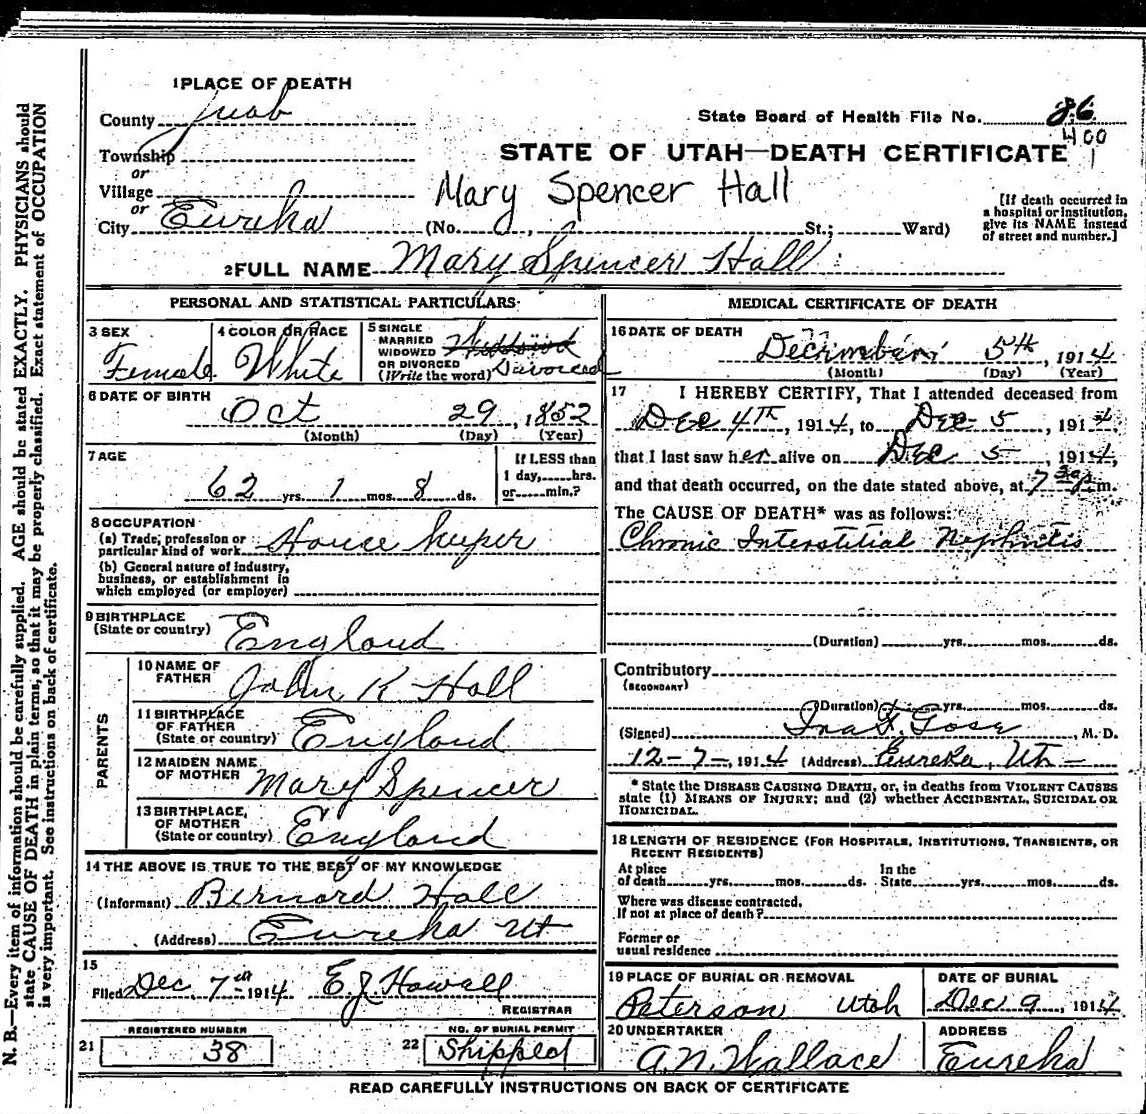 1 PLACE OF DEATH
County Juab
State Board of Health File No. 86
400
1
Township
or
Village
or
City Eureka
STATE OF UTAH—DEATH CERTIFICATE
Mary Spencer Hall
(No. , St.; Ward)
[If death occurred in
a hospital or institution,
give its NAME instead
of street and number.]
2 FULL NAME Mary Spencer Hall
PERSONAL AND STATISTICAL PARTICULARS
3 SEX
Female
4 COLOR OR RACE
White
5 SINGLE
MARRIED
WIDOWED
OR DIVORCED
(Write the word) Divorced
6 DATE OF BIRTH
Oct 29, 1852
(Month) (Day) (Year)
7 AGE
62 yrs. 1 mos. 8 ds.
If LESS than
1 day, hrs.
or min.?
8 OCCUPATION
(a) Trade, profession or
particular kind of work House keeper
(b) General nature of industry,
business, or establishment in
which employed (or employer)
9 BIRTHPLACE
(State or country) England
PARENTS
10 NAME OF
FATHER John K Hall
11 BIRTHPLACE
OF FATHER
(State or country) England
12 MAIDEN NAME
OF MOTHER Mary Spencer
13 BIRTHPLACE
OF MOTHER
(State or country) England
14 THE ABOVE IS TRUE TO THE BEST OF MY KNOWLEDGE
(Informant) Bernard Hall
(Address) Eureka Ut
15
Filed Dec. 7th 1914 E.J. Howell
REGISTRAR
REGISTERED NUMBER
21 38
NO. OF BURIAL PERMIT
22 Shipped
MEDICAL CERTIFICATE OF DEATH
16 DATE OF DEATH
December 5th, 1914
(Month) (Day) (Year)
17 I HEREBY CERTIFY, That I attended deceased from
Dec 4th, 1914, to Dec 5, 1914,
that I last saw her alive on Dec 5, 1914,
and that death occurred, on the date stated above, at 7 30 p m.
The CAUSE OF DEATH* was as follows:
Chronic Interstitial Nephritis
(Duration) yrs. mos. ds.
Contributory
(SECONDARY)
(Duration) yrs. mos. ds.
(Signed) , M. D.
12-7-, 1914 (Address) Eureka, Ut-
* State the DISEASE CAUSING DEATH, or, in deaths from VIOLENT CAUSES
state (1) MEANS OF INJURY; and (2) whether ACCIDENTAL, SUICIDAL OR
HOMICIDAL.
18 LENGTH OF RESIDENCE (FOR HOSPITALS, INSTITUTIONS, TRANSIENTS, OR
RECENT RESIDENTS)
At place
of death yrs. mos. ds.
In the
State yrs. mos. ds.
Where was disease contracted,
if not at place of death?
Former or
usual residence
19 PLACE OF BURIAL OR REMOVAL
Peterson Utah
DATE OF BURIAL
Dec 9, 1914
20 UNDERTAKER
A.N. Wallace
ADDRESS
Eureka
READ CAREFULLY INSTRUCTIONS ON BACK OF CERTIFICATE
N. B.—Every item of information should be carefully supplied. AGE should be stated EXACTLY. PHYSICIANS should
state CAUSE OF DEATH in plain terms, so that it may be properly classified. Exact statement of OCCUPATION
is very important. See instructions on back of certificate.